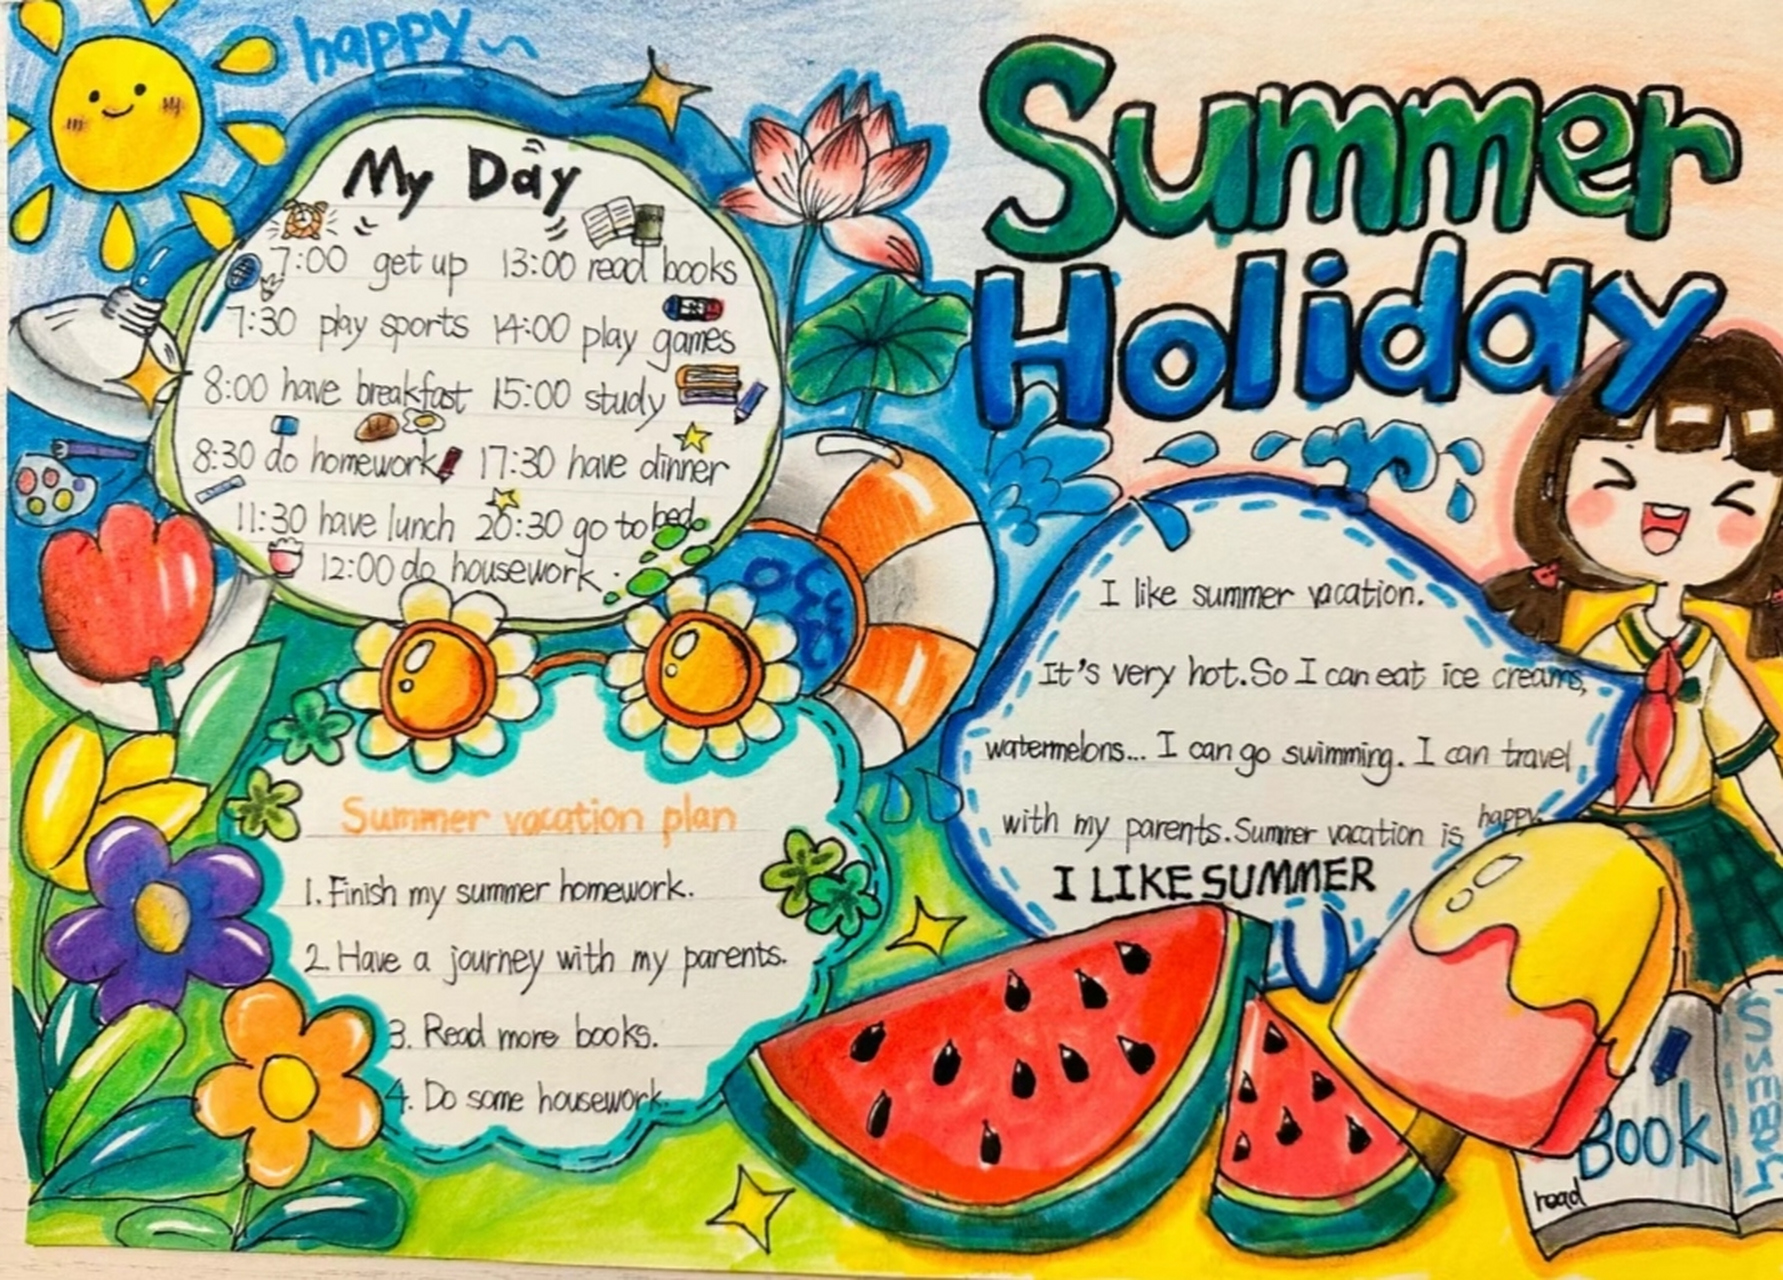 happy
Summer
Holiday
My Day
7:00 get up 13:00 read books
7:30 play sports 14:00 play games
8:00 have breakfast 15:00 study
8:30 do homework 17:30 have dinner
11:30 have lunch 20:30 go to bed.
12:00 do housework.
I like summer vacation.
It's very hot. So I can eat ice creams,
watermelons... I can go swimming. I can travel
with my parents. Summer vacation is happy.
I LIKE SUMMER
Summer vacation plan
1. Finish my summer homework.
2. Have a journey with my parents.
3. Read more books.
4. Do some housework.
Book
read